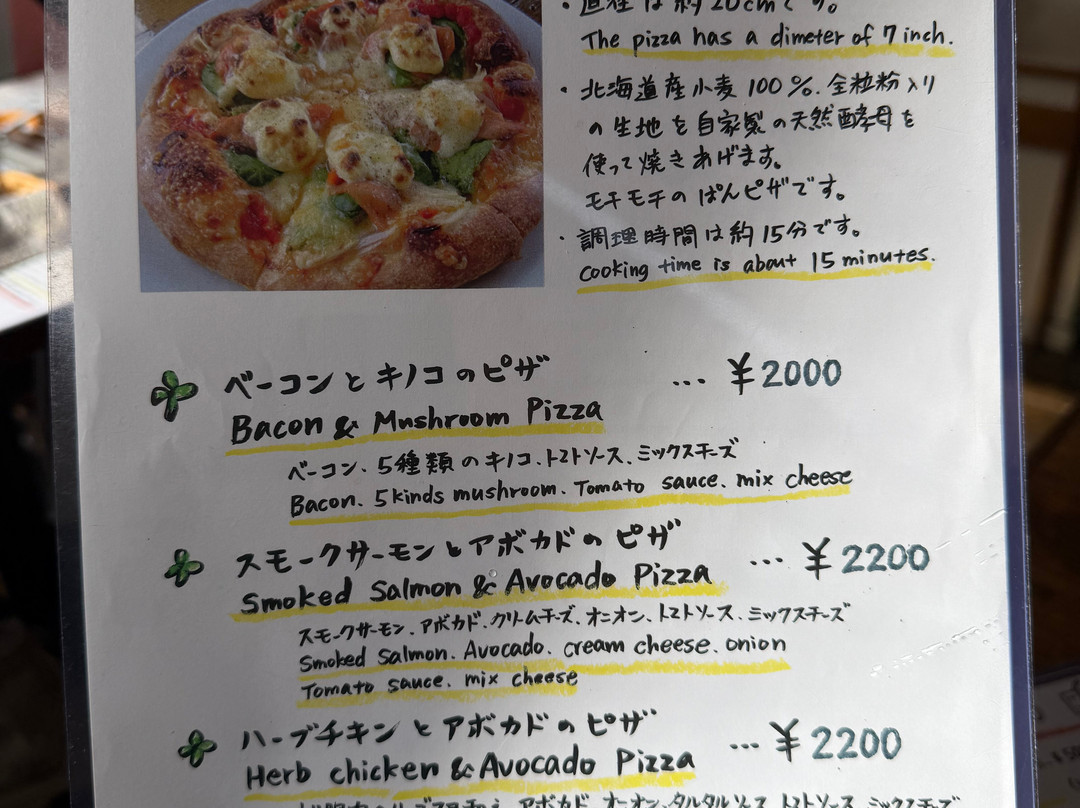 ・直径は約20cmです。
The pizza has a dimeter of 7 inch.
・北海道産小麦100%.全粒粉入り
の生地を自家製の天然酵母を
使って焼きあげます。
モチモチのぱんピザです。
・調理時間は約15分です。
cooking time is about 15 minutes.
ベーコンとキノコのピザ ... ¥2000
Bacon & Mushroom Pizza
ベーコン、5種類のキノコ、トマトソース、ミックスチーズ
Bacon. 5kinds mushroom. Tomato sauce. mix cheese
スモークサーモンとアボカドのピザ ... ¥2200
Smoked Salmon & Avocado Pizza
スモークサーモン、アボカド、クリームチーズ、オニオン、トマトソース、ミックスチーズ
Smoked Salmon. Avocado. cream cheese. onion
Tomato sauce. mix cheese
ハーブチキンとアボカドのピザ ... ¥2200
Herb chicken & Avocado Pizza
アボカド、オニオン、タルタルソース、トマトソース、ミックスチーズ